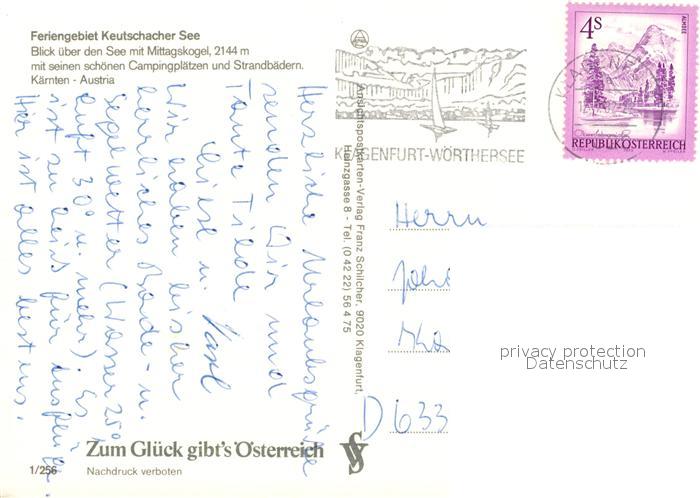 Feriengebiet Keutschacher See
Blick über den See mit Mittagskogel, 2144 m
mit seinen schönen Campingplätzen und Strandbädern.
Kärnten - Austria
Herzliche Urlaubsgrüße
senden Dir und
Tante Tilde
Christl u. Karl
Wir haben bisher
herrliches Bade- u.
Segelwetter (Wasser 25°
Luft 30° u. mehr). Es
ist zu heiß für Ausflüge.
Hier ist alles bestens.
Ansichtspostkarten-Verlag Franz Schilcher, 9020 Klagenfurt,
Heinzgasse 8 - Tel. (0 42 22) 56 4 75
KLAGENFURT-WÖRTHERSEE
4S
ALMSEE
REPUBLIK ÖSTERREICH
Herrn
D 633
privacy protection
Datenschutz
Zum Glück gibt's Österreich
1/256
Nachdruck verboten